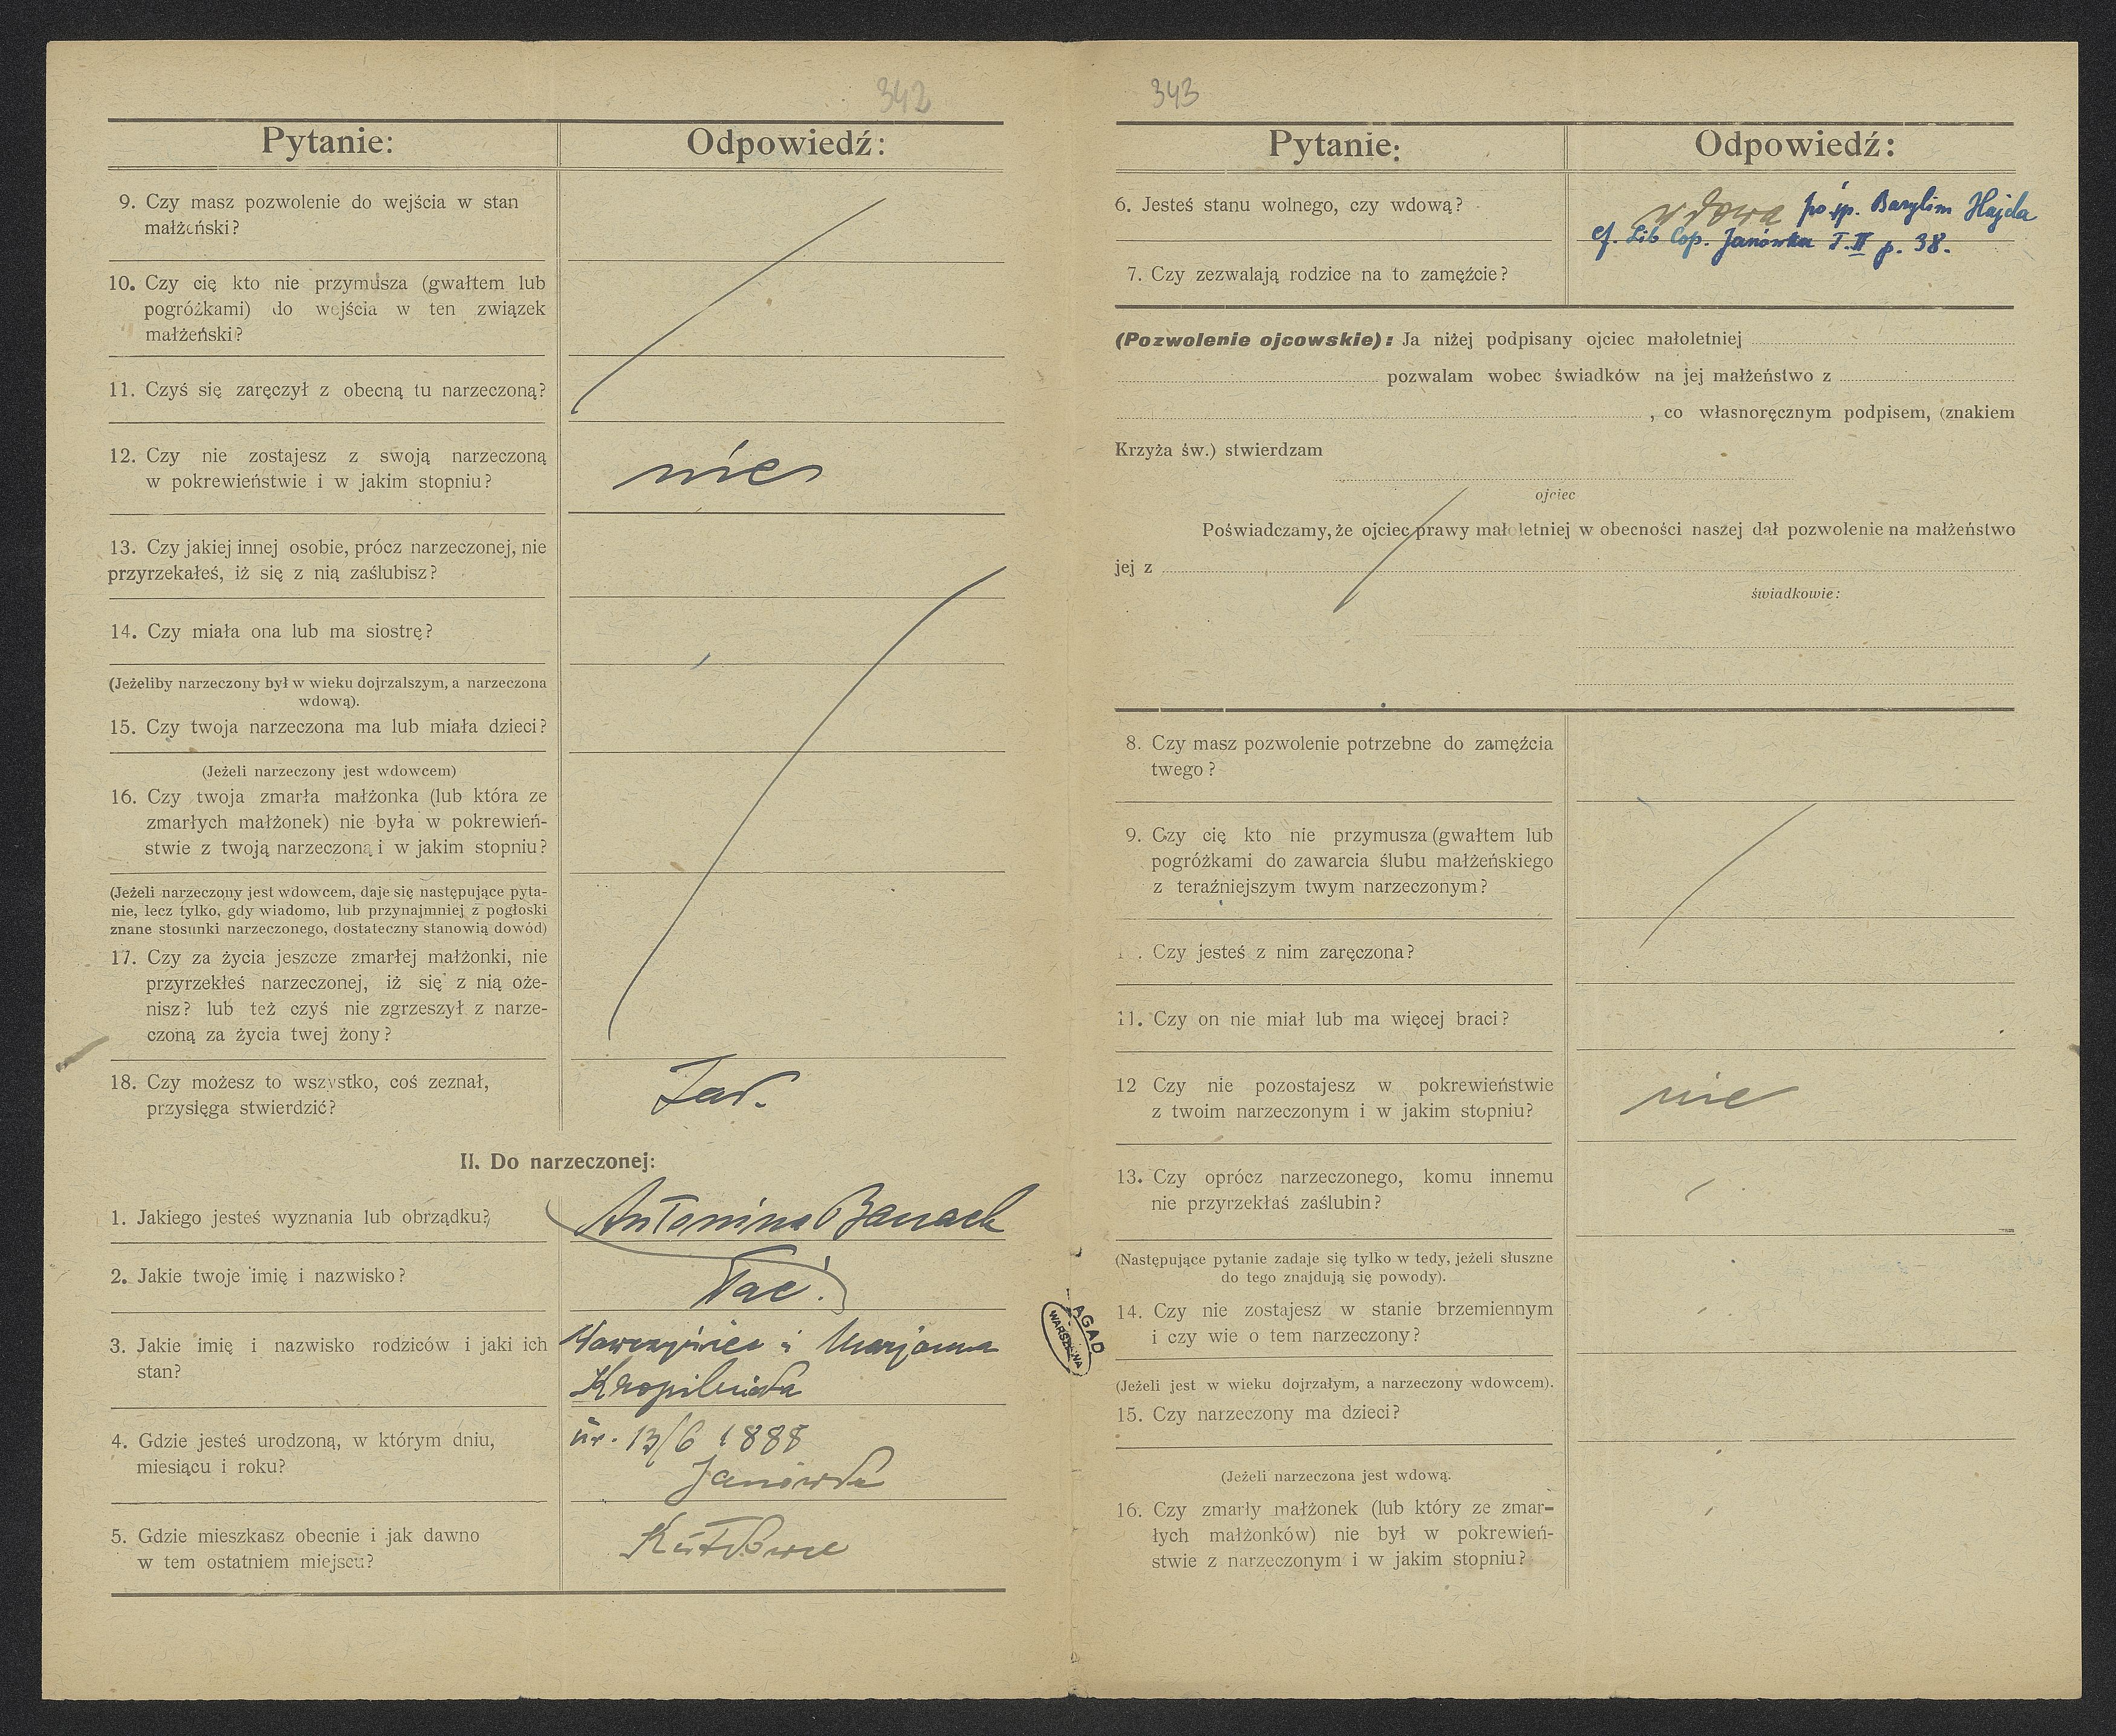 342
Pytanie:
Odpowiedź:
9. Czy masz pozwolenie do wejścia w stan
małżeński?
10. Czy cię kto nie przymusza (gwałtem lub
pogróżkami) do wejścia w ten związek
małżeński?
11. Czyś się zaręczył z obecną tu narzeczoną?
12. Czy nie zostajesz z swoją narzeczoną
w pokrewieństwie i w jakim stopniu?
nie
13. Czy jakiej innej osobie, prócz narzeczonej, nie
przyrzekałeś, iż się z nią zaślubisz?
14. Czy miała ona lub ma siostrę?
(Jeżeliby narzeczony był w wieku dojrzalszym, a narzeczona
wdową).
15. Czy twoja narzeczona ma lub miała dzieci?
(Jeżeli narzeczony jest wdowcem)
16. Czy twoja zmarła małżonka (lub która ze
zmarłych małżonek) nie była w pokrewień-
stwie z twoją narzeczoną i w jakim stopniu?
(Jeżeli narzeczony jest wdowcem, daje się następujące pyta-
nie, lecz tylko, gdy wiadomo, lub przynajmniej z pogłoski
znane stosunki narzeczonego, dostateczny stanowią dowód)
17. Czy za życia jeszcze zmarłej małżonki, nie
przyrzekłeś narzeczonej, iż się z nią oże-
nisz? lub też czyś nie zgrzeszył z narze-
czoną za życia twej żony?
18. Czy możesz to wszystko, coś zeznał,
przysięga stwierdzić?
II. Do narzeczonej:
1. Jakiego jesteś wyznania lub obrządku?
Antonina Banach
2. Jakie twoje imię i nazwisko?
łac.
3. Jakie imię i nazwisko rodziców i jaki ich
stan?
Wawrzyniec i Marjanna
4. Gdzie jesteś urodzoną, w którym dniu,
miesiącu i roku?
ur. 13/6 1888
Janówka
5. Gdzie mieszkasz obecnie i jak dawno
w tem ostatniem miejscu?
343
Pytanie:
Odpowiedź:
6. Jesteś stanu wolnego, czy wdową?
wdowa po śp. Barylim Hajda
cf. Lib Cop. Janówka T. II p. 38.
7. Czy zezwalają rodzice na to zamęźcie?
(Pozwolenie ojcowskie): Ja niżej podpisany ojciec małoletniej
pozwalam wobec świadków na jej małżeństwo z
, co własnoręcznym podpisem, (znakiem
Krzyża św.) stwierdzam
ojciec
Poświadczamy, że ojciec prawy małoletniej w obecności naszej dał pozwolenie na małżeństwo
jej z
świadkowie:
8. Czy masz pozwolenie potrzebne do zamęźcia
twego?
9. Czy cię kto nie przymusza (gwałtem lub
pogróżkami do zawarcia ślubu małżeńskiego
z teraźniejszym twym narzeczonym?
1 . Czy jesteś z nim zaręczona?
11. Czy on nie miał lub ma więcej braci?
12 Czy nie pozostajesz w pokrewieństwie
z twoim narzeczonym i w jakim stopniu?
nie
13. Czy oprócz narzeczonego, komu innemu
nie przyrzekłaś zaślubin?
(Następujące pytanie zadaje się tylko w tedy, jeżeli słuszne
do tego znajdują się powody).
14. Czy nie zostajesz w stanie brzemiennym
i czy wie o tem narzeczony?
(Jeżeli jest w wieku dojrzałym, a narzeczony wdowcem).
15. Czy narzeczony ma dzieci?
(Jeżeli narzeczona jest wdową.
16. Czy zmarły małżonek (lub który ze zmar-
łych małżonków) nie był w pokrewień-
stwie z narzeczonym i w jakim stopniu?
AGAD
WARSZAWA